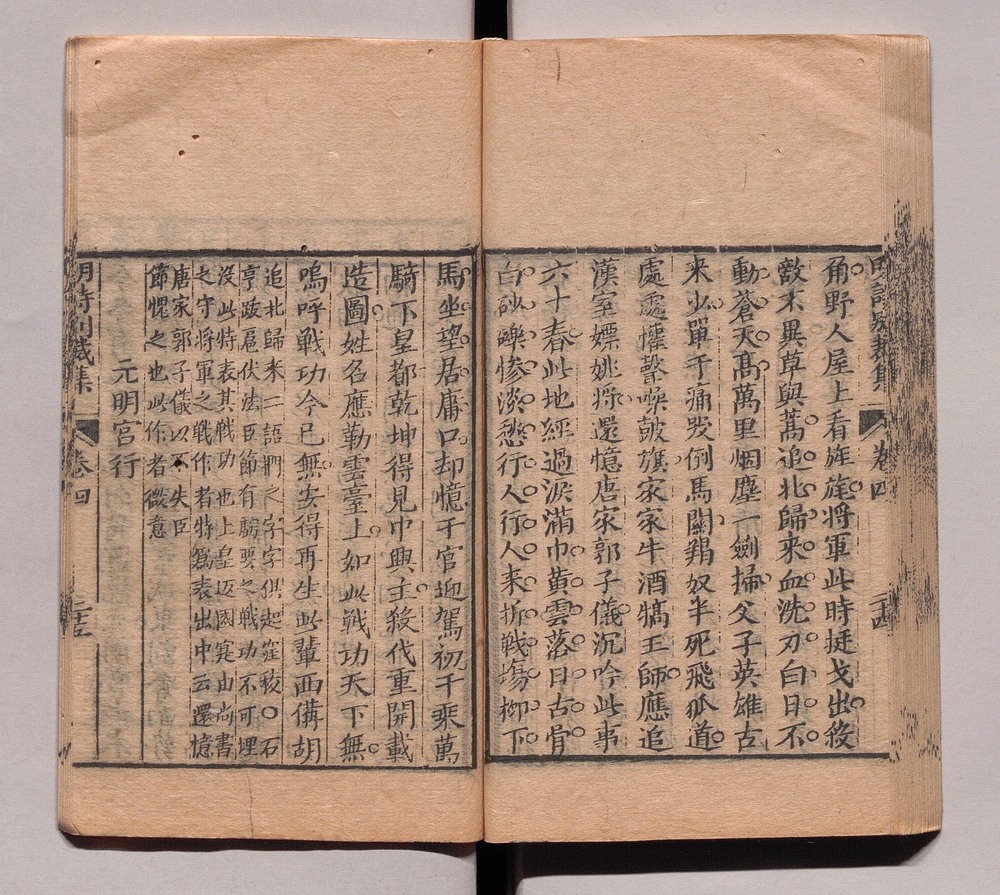 明詩别裁集 卷四 二十四
角野人屋上看旌旄將軍此時挺戈出殺
敵不異草與蒿追北歸來血洗刀白日不
動蒼天高萬里烟塵一劍掃父子英雄古
来少單于痛哭倒馬關羯奴半死飛狐道
處處懽聲噪皷旗家家牛酒犒王師應追
漢室嫖姚將還憶唐家郭子儀沉吟此事
六十春此地經過淚滿巾黄雲落日古骨
白砂礫惨淡愁行人行人来折戰塲栁下
馬坐望居庸口却憶千官迎駕初千乘萬
騎下皇都乾坤得見中興主殺代重開載
造圖姓名應勒雲臺上如此戰功天下無
嗚呼戰功今已無安得再生此輩西備胡
追北歸来二語字字俱起窪稜○石
亨跋扈伏法臣節有虧要之戰功不可埋
没此特表其戦功也上皇返國寔由尚書
之守將軍之戰作者特爲表出中云還憶
唐家郭子儀以不失臣
節愧之也此作者微意
元明宫行
明詩别裁集 卷四 二十五